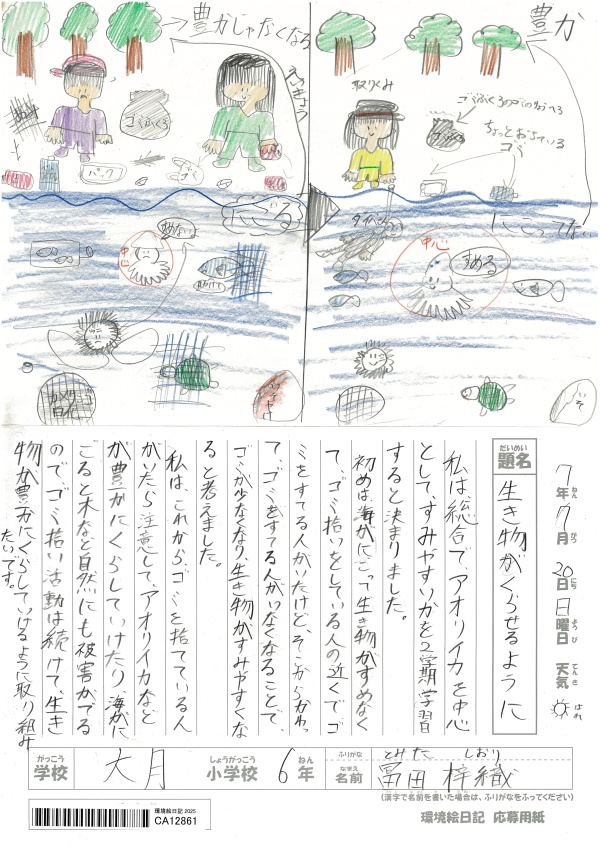 豊かじゃなくなる
えいきょう
ゴミぶくろ
パック
にごる
中心
すめないよ
助けて
豊か
取りくみ
ゴミぶくろの中のゴミがふえる
ちょっとおちている
ゴミ
ダイバー
にごってない
中心
すめる
いそ
7年7月20日日曜日 天気 はれ
題名 生き物がくらせるように
私は総合で、アオリイカを中心
としてすみやすいかを2学期学習
すると決まりました。
初めは海がにごって生き物がすめなく
て、ゴミ拾いをしている人の近くでゴ
ミをすてる人がいたけど、そこからかわっ
て、ゴミをすてる人がいなくなることで、
ゴミが少なくなり、生き物がすみやすくな
ると考えました。
私は、これからゴミを捨てている人
がいたら注意して、アオリイカなど
が豊かにくらしていけたり、海がに
ごると木など自然にも被害がでる
のでゴミ拾い活動は続けて、生き
物が豊かにくらしていけるように取り組み
たいです。
がっこう しょうがっこう ねん ふりがな とみた しおり
学校 大月 小学校 6年 なまえ 名前 冨田 梓織
(漢字で名前を書いた場合は、ふりがなをふってください)
環境絵日記 応募用紙
環境絵日記 2025
CA12861